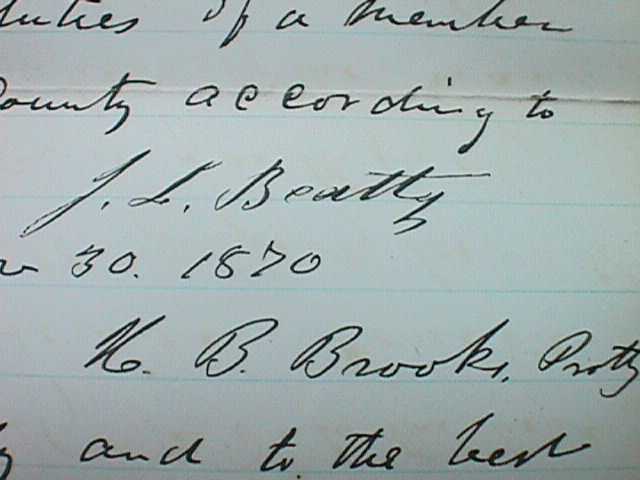 duties of a member
County according to
J. L. Beatty
30. 1870
H. B. Brooks, Prothy
and to the best